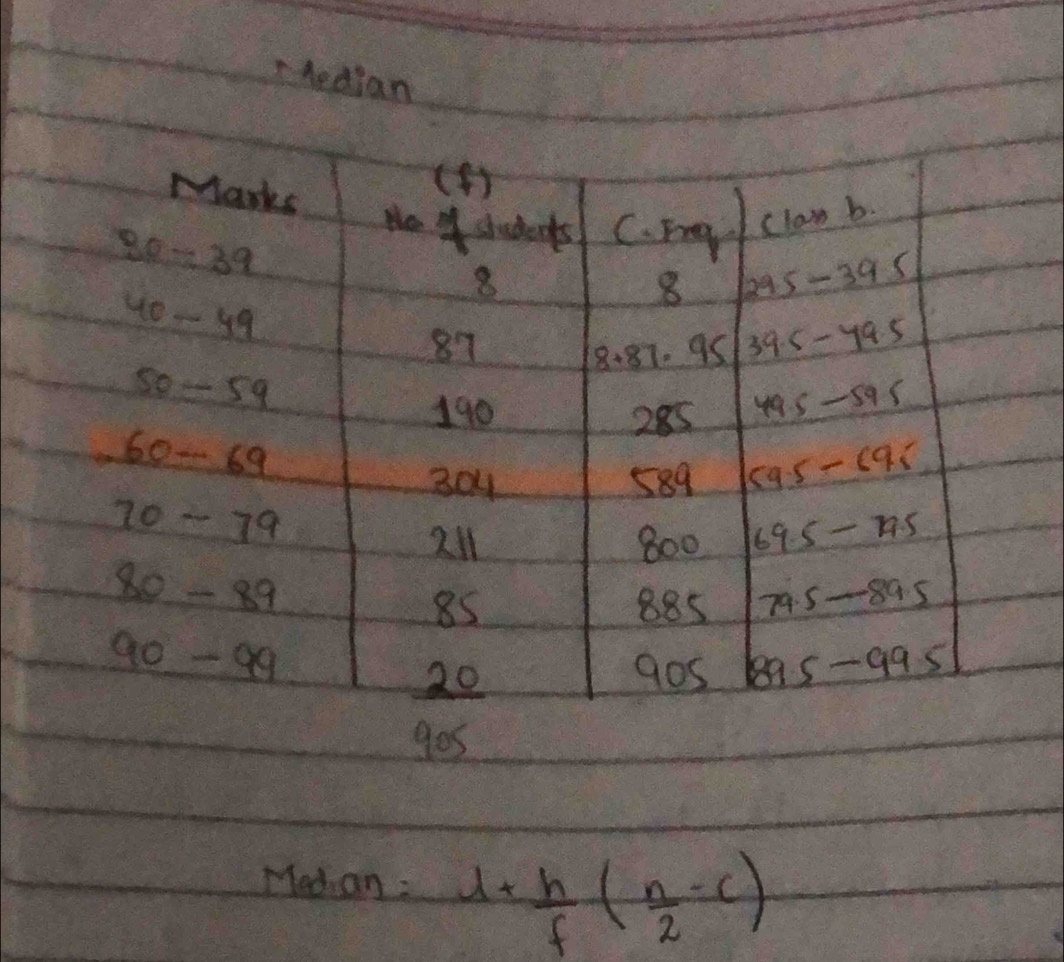 Median
(f)
Marks No of students C.Freq. Class b.
30 - 39 8 8 29.5 - 39.5
40 - 49 87 8+87= 95 39.5 - 49.5
50 - 59 190 285 49.5 - 59.5
60 - 69 304 589 59.5 - 69.5
70 - 79 211 800 69.5 - 79.5
80 - 89 85 885 79.5 - 89.5
90 - 99 20 905 89.5 - 99.5
905
Median = l + h/f ( n/2 - c )